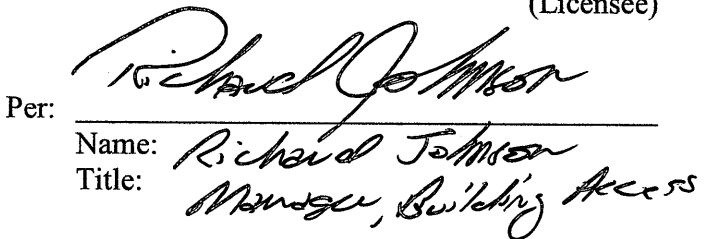 (Licensee)
Richard Johnson
Per:
Name: Richard Johnson
Title: Manager, Building Access